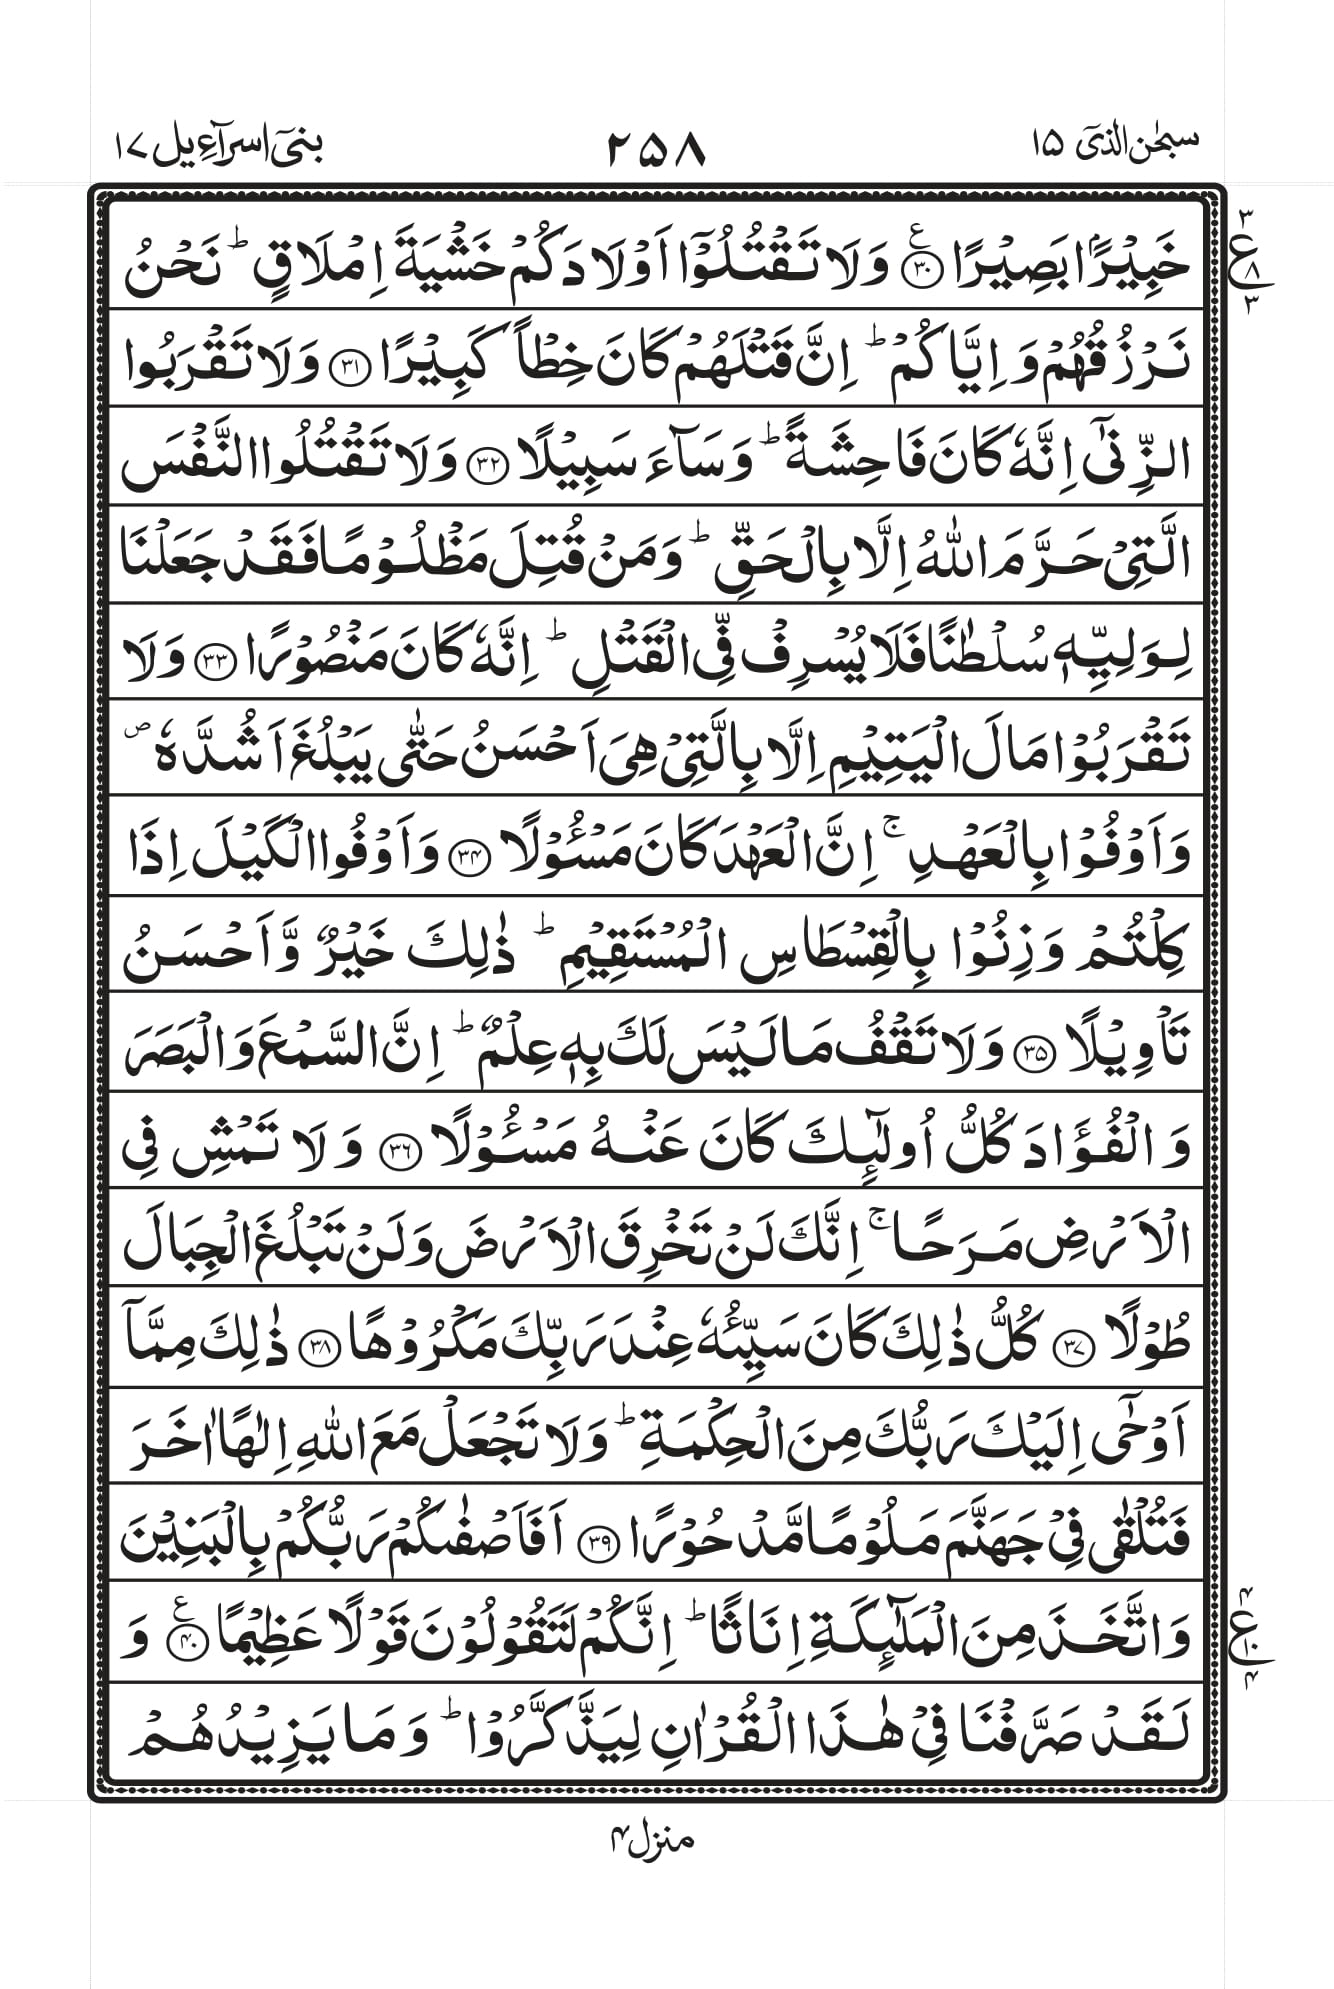 سبحٰن الذیٓ ۱۵ ۲۵۸ بنیٓ اسرآءیل ۱۷
۳
ع
۸
۳
خَبِیْرًۢا بَصِیْرًا ۝۳۰ ع وَلَا تَقْتُلُوْۤا اَوْلَادَكُمْ خَشْیَةَ اِمْلَاقٍ ؕ نَحْنُ
نَرْزُقُهُمْ وَ اِیَّاكُمْ ؕ اِنَّ قَتْلَهُمْ كَانَ خِطْاً كَبِیْرًا ۝۳۱ وَلَا تَقْرَبُوا
الزِّنٰۤی اِنَّهٗ كَانَ فَاحِشَةً ؕ وَسَآءَ سَبِیْلًا ۝۳۲ وَلَا تَقْتُلُوا النَّفْسَ
الَّتِیْ حَرَّمَ اللّٰهُ اِلَّا بِالْحَقِّ ؕ وَمَنْ قُتِلَ مَظْلُوْمًا فَقَدْ جَعَلْنَا
لِوَلِیِّهٖ سُلْطٰنًا فَلَا یُسْرِفْ فِّی الْقَتْلِ ؕ اِنَّهٗ كَانَ مَنْصُوْرًا ۝۳۳ وَلَا
تَقْرَبُوْا مَالَ الْیَتِیْمِ اِلَّا بِالَّتِیْ هِیَ اَحْسَنُ حَتّٰی یَبْلُغَ اَشُدَّهٗ ۪
وَاَوْفُوْا بِالْعَهْدِ ۚ اِنَّ الْعَهْدَ كَانَ مَسْـُٔوْلًا ۝۳۴ وَاَوْفُوا الْكَیْلَ اِذَا
كِلْتُمْ وَزِنُوْا بِالْقِسْطَاسِ الْمُسْتَقِیْمِ ؕ ذٰلِكَ خَیْرٌ وَّاَحْسَنُ
تَاْوِیْلًا ۝۳۵ وَلَا تَقْفُ مَا لَیْسَ لَكَ بِهٖ عِلْمٌ ؕ اِنَّ السَّمْعَ وَالْبَصَرَ
وَالْفُؤَادَ كُلُّ اُولٰٓئِكَ كَانَ عَنْهُ مَسْـُٔوْلًا ۝۳۶ وَلَا تَمْشِ فِی
الْاَرْضِ مَرَحًا ۚ اِنَّكَ لَنْ تَخْرِقَ الْاَرْضَ وَلَنْ تَبْلُغَ الْجِبَالَ
طُوْلًا ۝۳۷ كُلُّ ذٰلِكَ كَانَ سَیِّئُهٗ عِنْدَ رَبِّكَ مَكْرُوْهًا ۝۳۸ ذٰلِكَ مِمَّاۤ
اَوْحٰۤی اِلَیْكَ رَبُّكَ مِنَ الْحِكْمَةِ ؕ وَلَا تَجْعَلْ مَعَ اللّٰهِ اِلٰهًا اٰخَرَ
فَتُلْقٰی فِیْ جَهَنَّمَ مَلُوْمًا مَّدْحُوْرًا ۝۳۹ اَفَاَصْفٰىكُمْ رَبُّكُمْ بِالْبَنِیْنَ
وَاتَّخَذَ مِنَ الْمَلٰٓئِكَةِ اِنَاثًا ؕ اِنَّكُمْ لَتَقُوْلُوْنَ قَوْلًا عَظِیْمًا ۝۴۰ ع وَ
۴
ع
۱۰
۴
لَقَدْ صَرَّفْنَا فِیْ هٰذَا الْقُرْاٰنِ لِیَذَّكَّرُوْا ؕ وَمَا یَزِیْدُهُمْ
منزل ۴